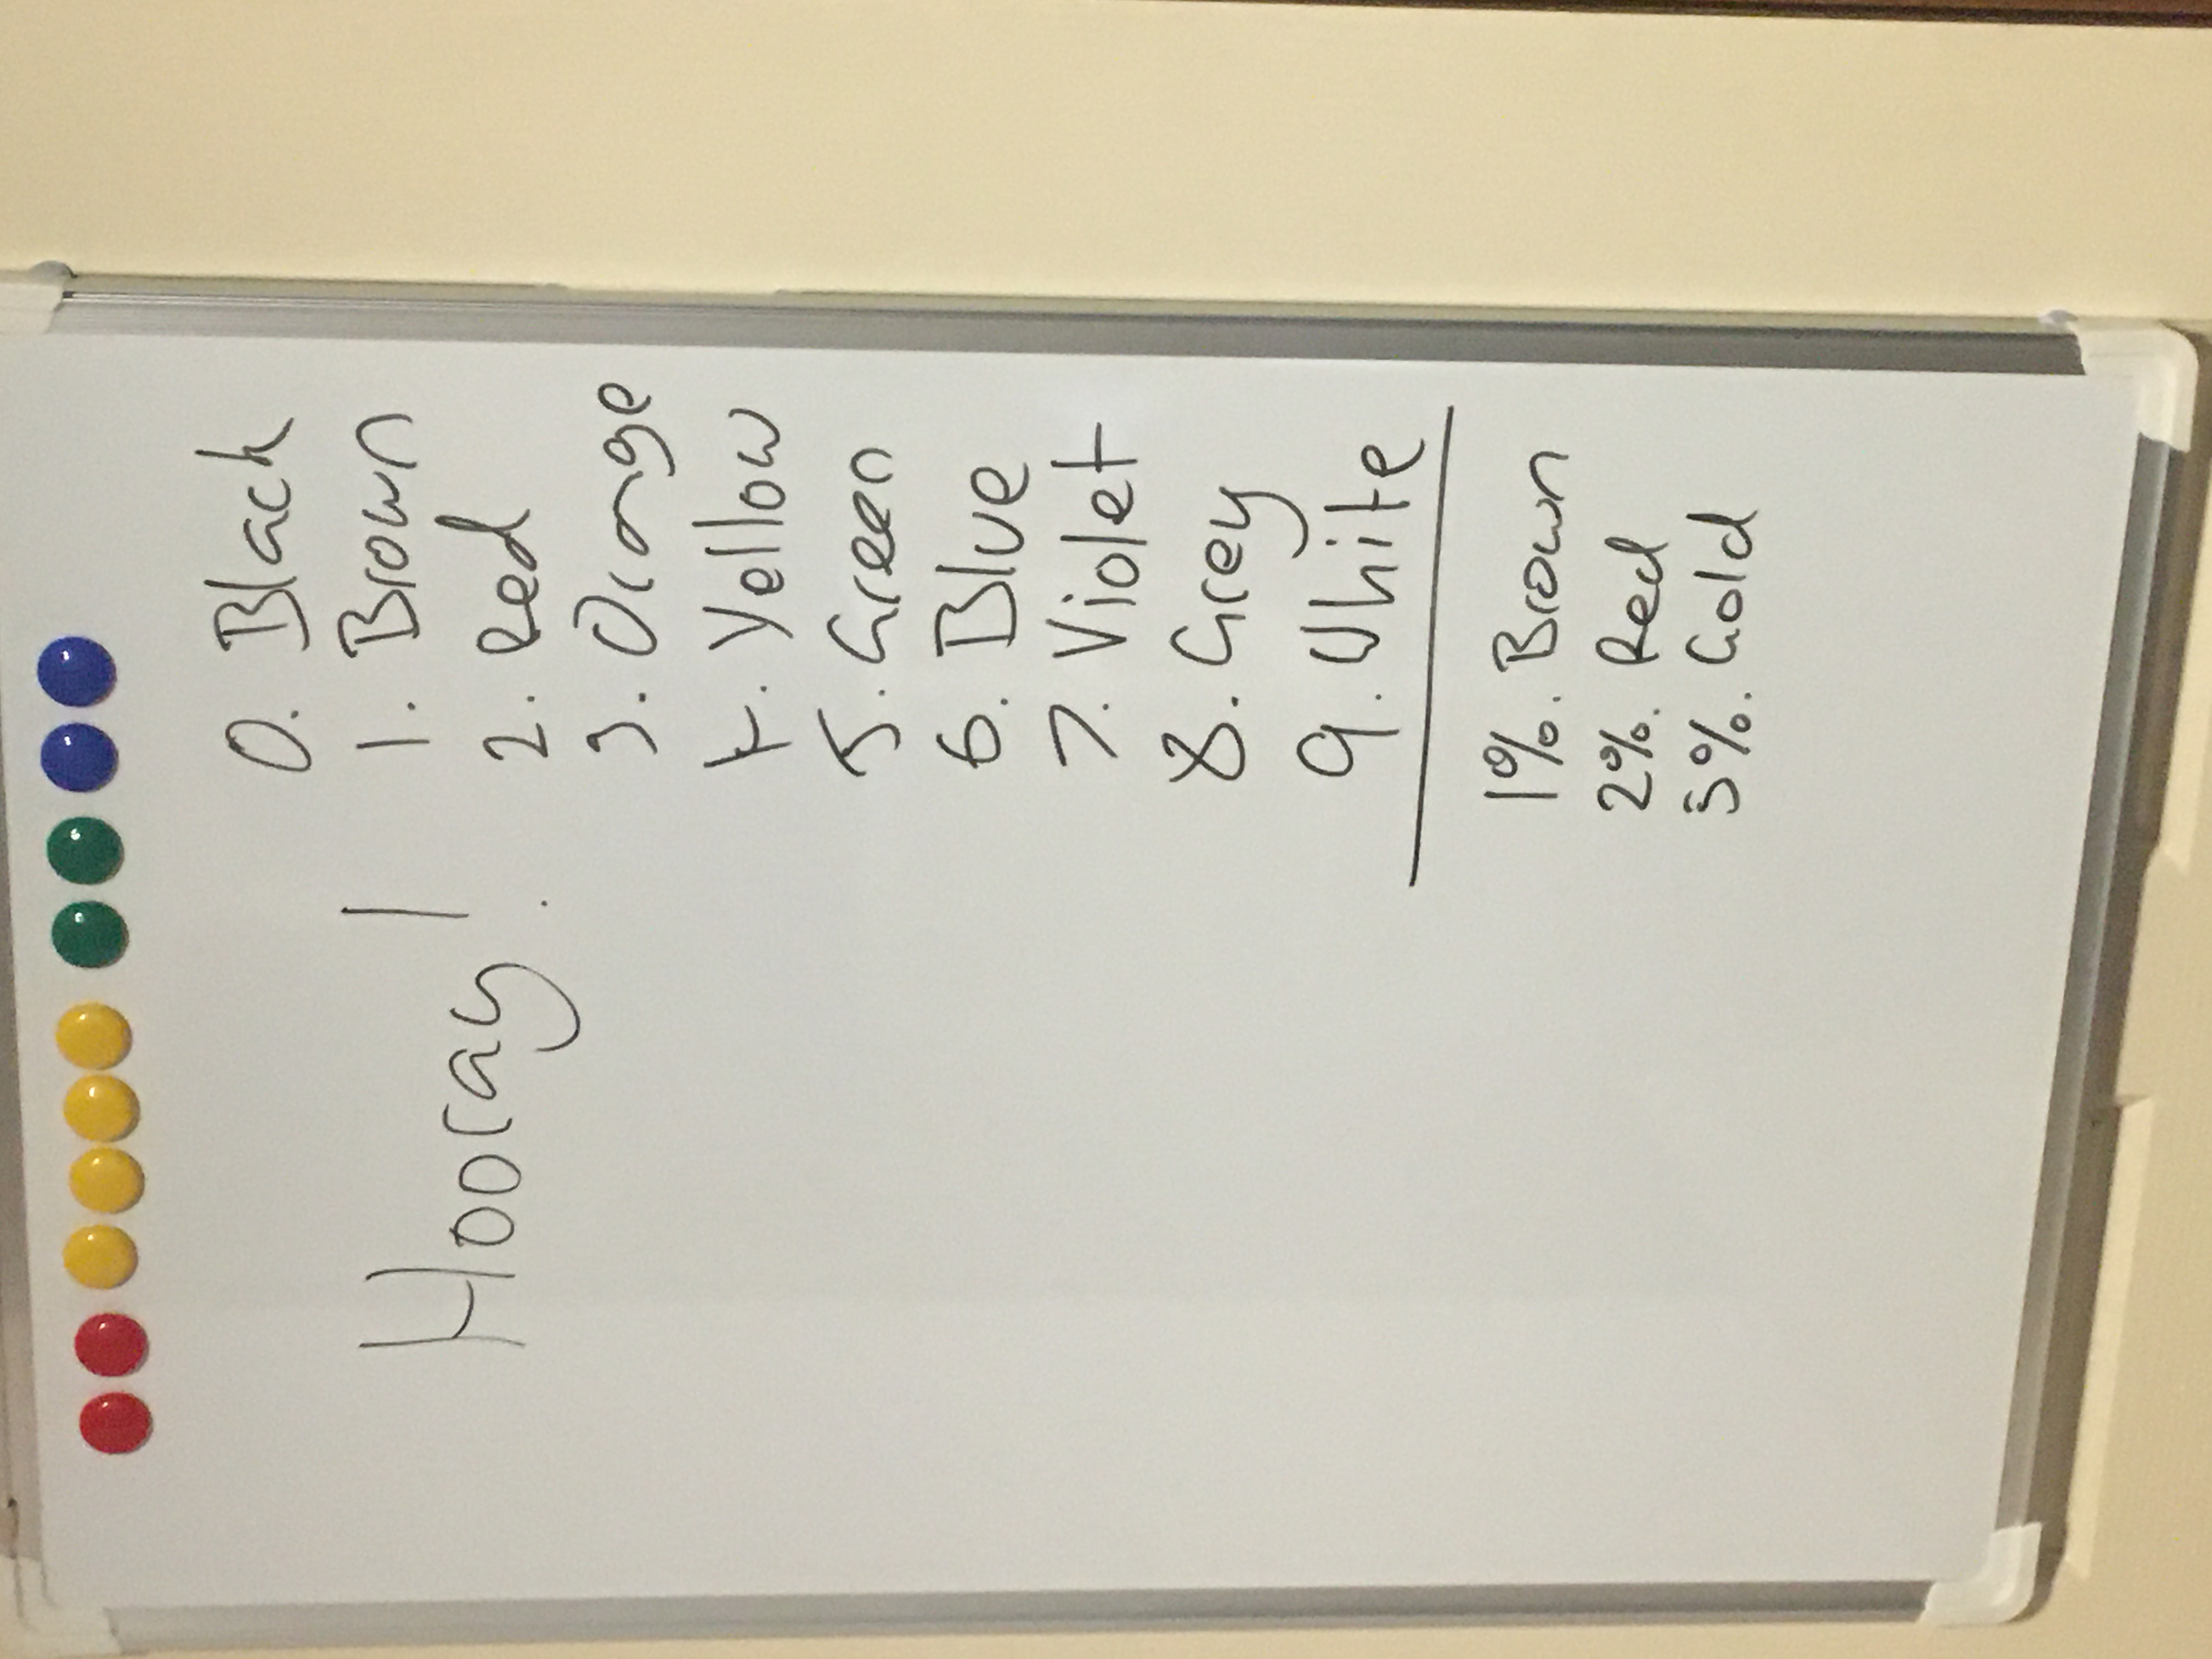 Hooray!
0. Black
1. Brown
2. Red
3. Orange
4. Yellow
5. Green
6. Blue
7. Violet
8. Grey
9. White
1%. Brown
2%. Red
5%. Gold